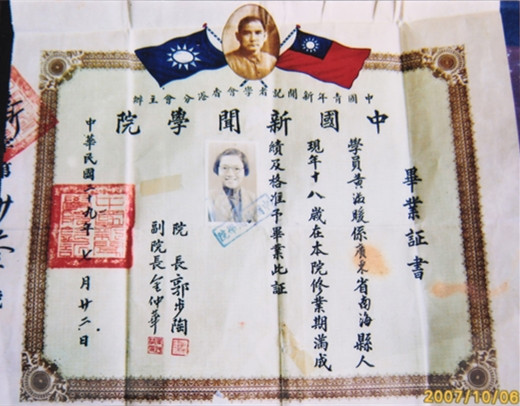 中國青年新聞記者學會香港分會主辦
中國新聞學院
畢業証書
學員黃係廣東省南海縣人
現年十八歲在本院修業期滿成
績及格准予畢業此証
院長郭步陶
副院長金仲華
中華民國二十九年七月廿二日
2007/10/06